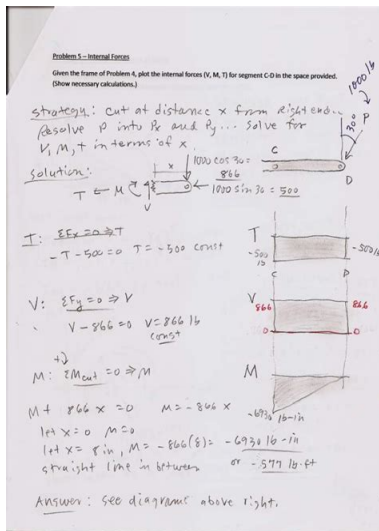 Problem 5 – Internal Forces
Given the frame of Problem 4, plot the internal forces (V, M, T) for segment C-D in the space provided.
(Show necessary calculations.)
strategy: cut at distance x from right end...
Resolve P into Px and Py... solve for
V, M, T in terms of x.
1000 lb
P
30°
C
D
solution:
x
1000 cos 30 =
866
1000 sin 30 = 500
T ← M
V
T: ΣFx = 0 ⇒ T
-T - 500 = 0 T = -500 const
T
-500
lb
-500 lb
C
D
V: ΣFy = 0 ⇒ V
V - 866 = 0 V = 866 lb
const
V
866
866
0
0
+
M: ΣMcut = 0 ⇒ M
M
M + 866 x = 0 M = -866 x
-6930 lb-in
let x = 0 M = 0
let x = 8 in, M = -866(8) = -6930 lb-in
straight line in between or -577 lb-ft
Answer: see diagrams above right.